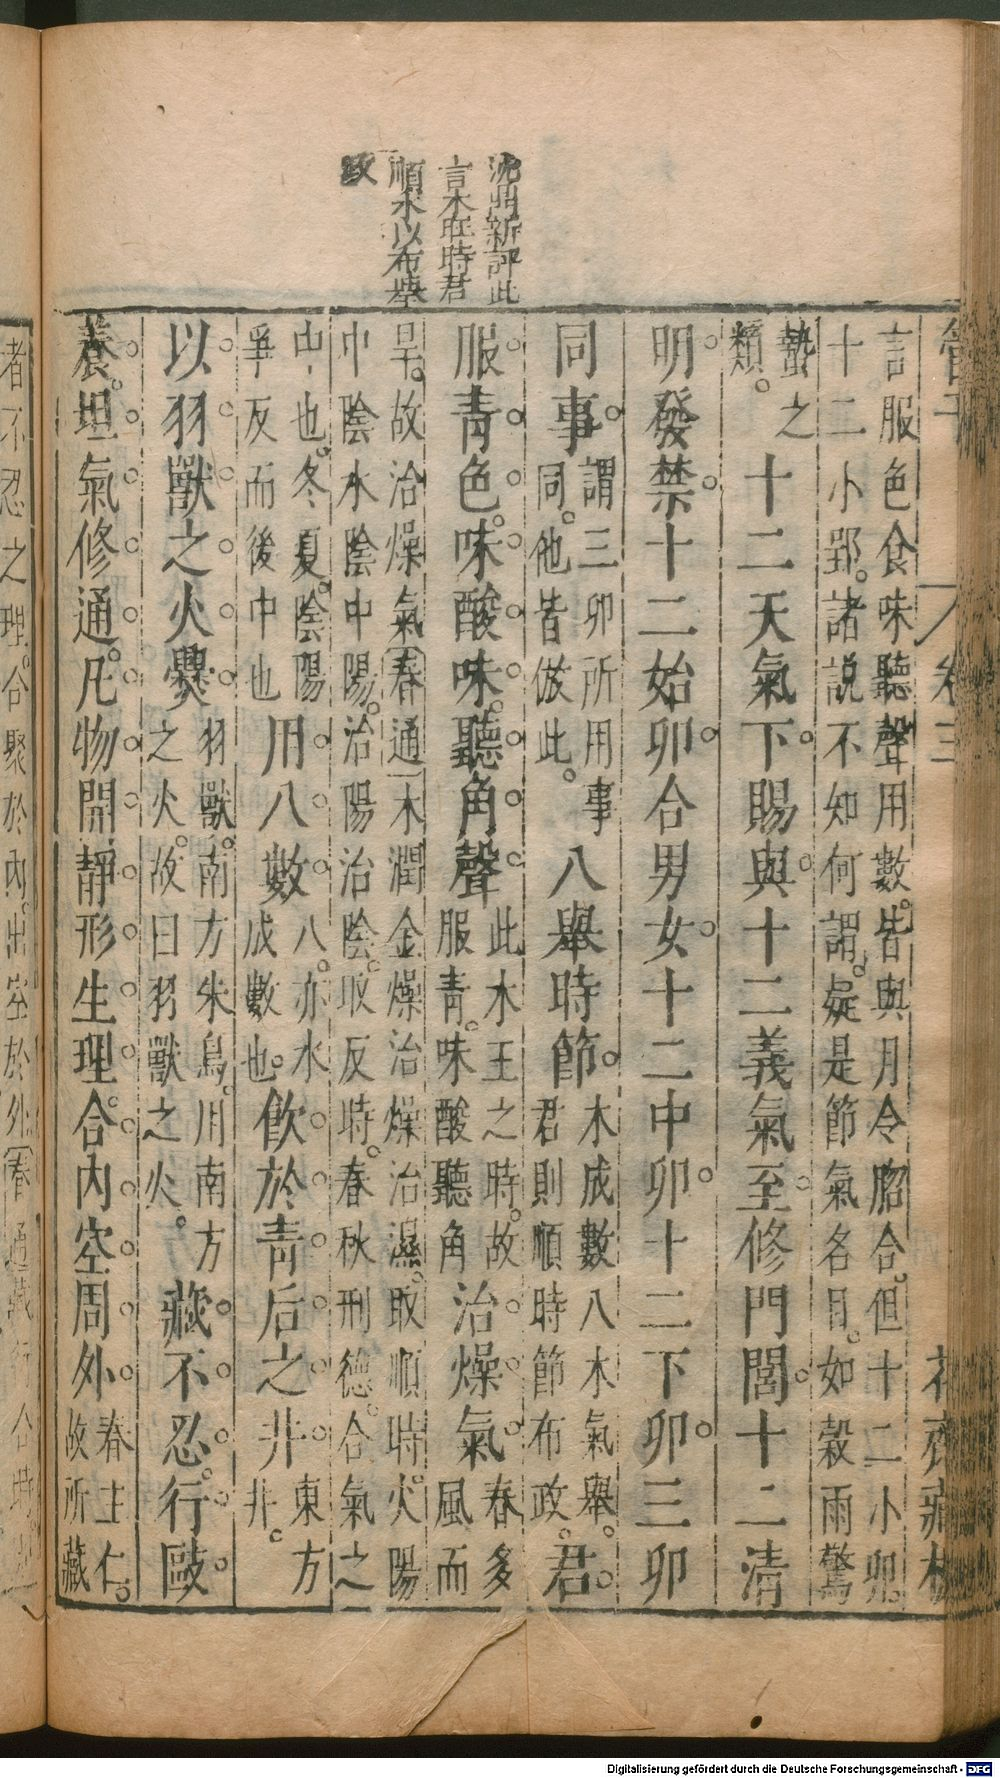 沈鼎新評此
言木旺時君
順木以布㙯
政
管子
卷三
花齋藏板
言服色食味聽聲用數皆與月令脗合但十二小卯
十二小郢諸説不知何謂疑是節氣名目如穀雨驚
蟄之
類
十二天氣下賜與十二義氣至修門閭十二清
明發禁十二始卯合男女十二中卯十二下卯三卯
同事
謂三卯所用事
同他皆倣此
八舉時節
木成數八木氣舉
君則順時節布政
君
服青色味酸味聽角聲
此木王之時故
服青味酸聽角
治燥氣
春多
風而
旱故治燥氣春通木潤金燥治燥治濕取順時火陽
中陰水陰中陽治陽治陰取反時春秋刑德合氣之
中也冬夏陰陽
爭反而後中也
用八數
八亦水
成數也
飲於青后之井
東方
井
以羽獸之火爨
羽獸南方朱鳥用南方
之火故曰羽獸之火
藏不忍行歐
養坦氣修通凡物開靜形生理合内空周外
春主仁
故所藏
者不忍之理合聚於內出空於外春通藏行合時
Digitalisierung gefördert durch die Deutsche Forschungsgemeinschaft - DFG